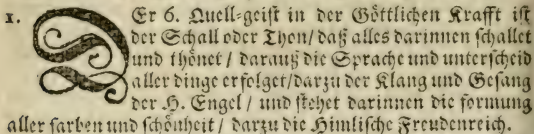 1. DEr 6. Quell-geist in der Göttlichen Krafft ist
der Schall oder Thon/ daß alles darinnen schallet
und thönet / darauß die Sprache und unterscheid
aller dinge erfolget/darzu der Klang und Gesang
der H. Engel / und stehet darinnen die formung
aller farben und schönheit / darzu die Himlische Freudenreich.